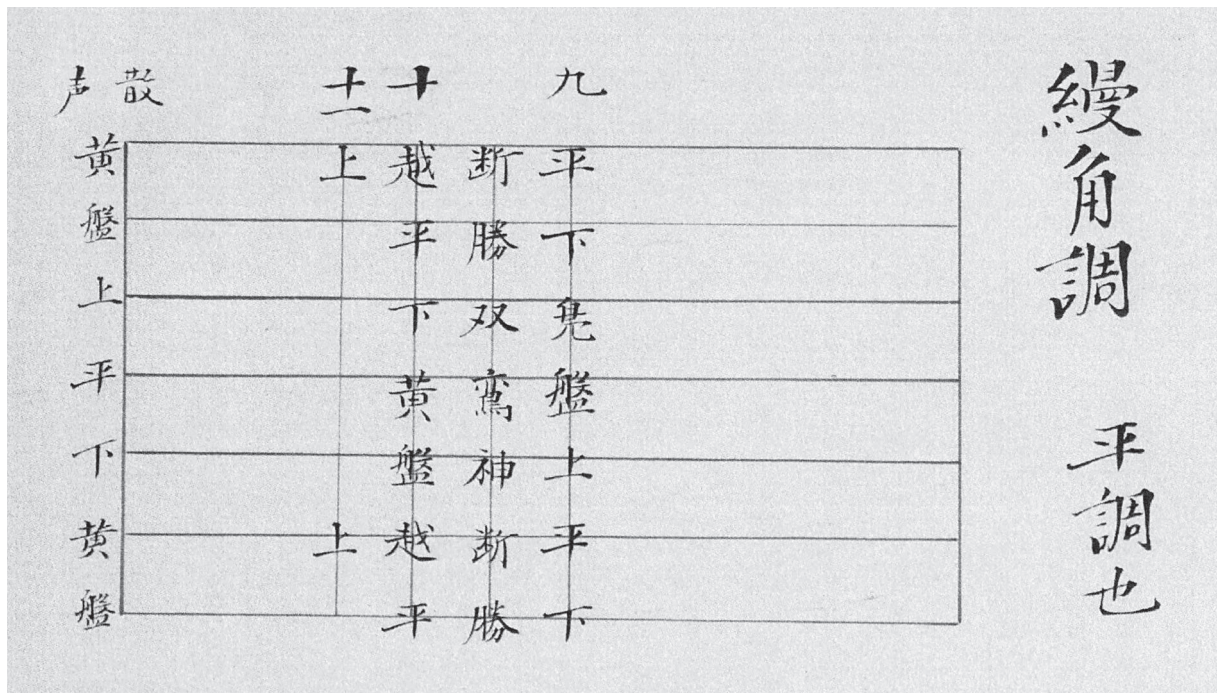 縵角調 平調也
九
平下凫盤上平下
断勝双鵉神断勝
十
越平下黄盤越平
十一
上上
散声
黄盤上平下黄盤